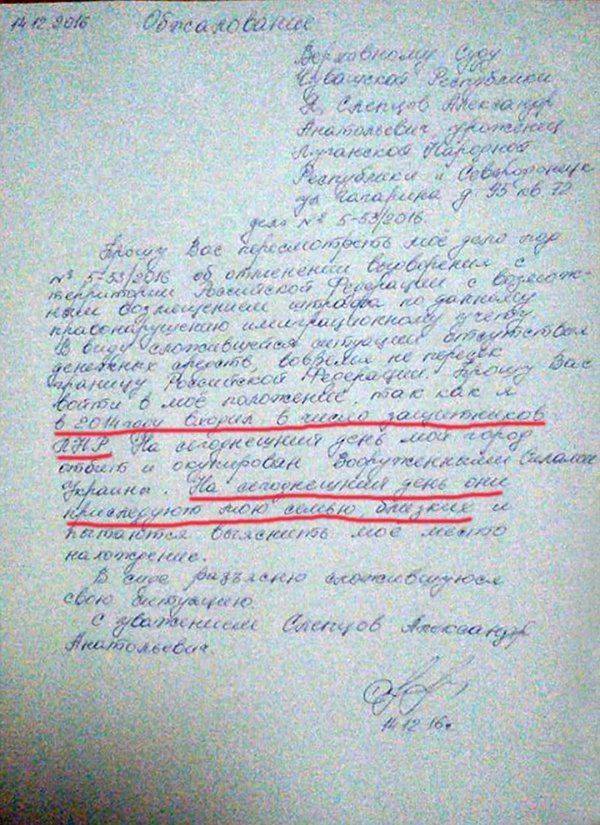 14.12.2016 Обжалование
Верховному Суду
Чувашской Республики
Я, Слепцов Александр
Анатольевич уроженец
Луганской Народной
Республики г Северодонецк
ул Гагарина д 95 кв 72
дело № 5-53/2016
Прошу Вас пересмотреть моё дело под
№ 5-53/2016 об отменении выдворения с
территории Российской Федерации с возмож-
ным возмещением штрафа по данному
правонарушению имиграционному учёту.
В виду сложившейся ситуации отсутствия
денежных средств, вовремя не пересек
границу Российской Федерации. Прошу Вас
войти в моё положение, так как я
в 2014 году входил в число защитников
ЛНР. На сегоднешний день мой город
отбит и окупирован Вооруженными Силами
Украины. На сегоднешний день они
приследуют мою семью близких и
пытаются выяснить моё место
нахождение.
В суде разъясню сложившуюся
свою ситуацию.
С уважением Слепцов Александр
Анатольевич.
14.12.16г